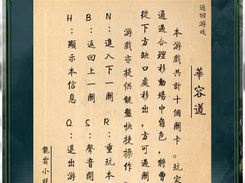 返回游戏
華容道
本游戏共计十個關卡。玩家
通過合理移動場中角色，將曹
從下方缺口處移出，方可過關
游戏亦提供鍵盤快捷操作
N：進入下一關
R：重玩本
B：返回上一關
S：聲音開
H：顯示本信息
Q：退出游